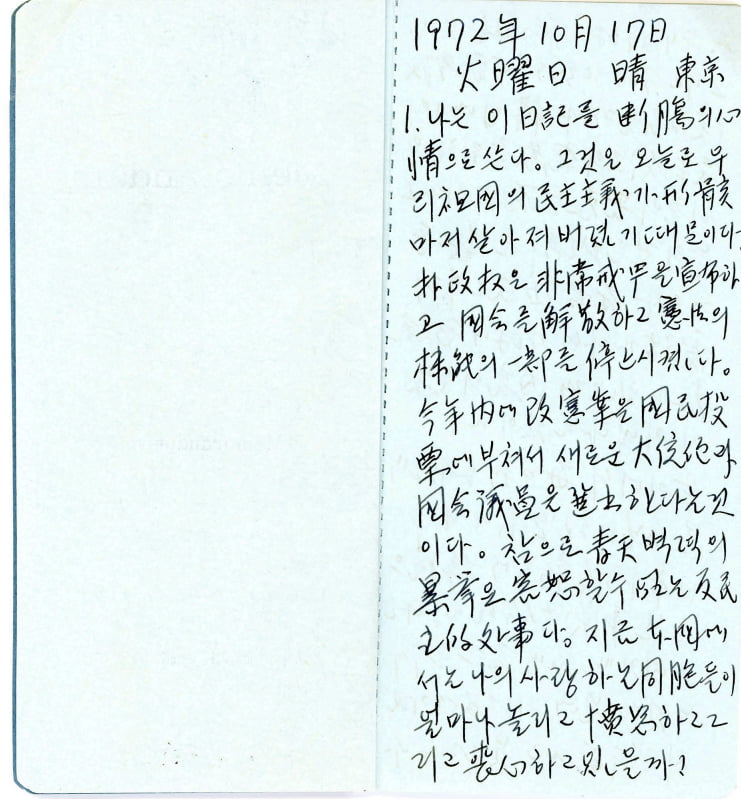 1972年 10月 17日
火曜日 晴 東京
1. 나는 이 日記를 断腸의 心
情으로 쓴다。그것은 오늘로 우
리 祖国의 民主主義가 形骸
마저 살아져 버렸기 때문이다
朴政权은 非常戒严을 宣布하
고 国会를 解散하고 憲法의
机能의 一部를 停止시켰다。
今年内에 改憲案을 国民投
票에 부쳐서 새로운 大统领과
国会議員을 选出한다는 것
이다。참으로 青天벽력의
暴挙요 容恕할 수 없는 反民
主的 处事다。지금 本国에
서는 나의 사랑하는 同胞들이
얼마나 놀라고 憤怒하고 그
리고 喪心하고 있을까?